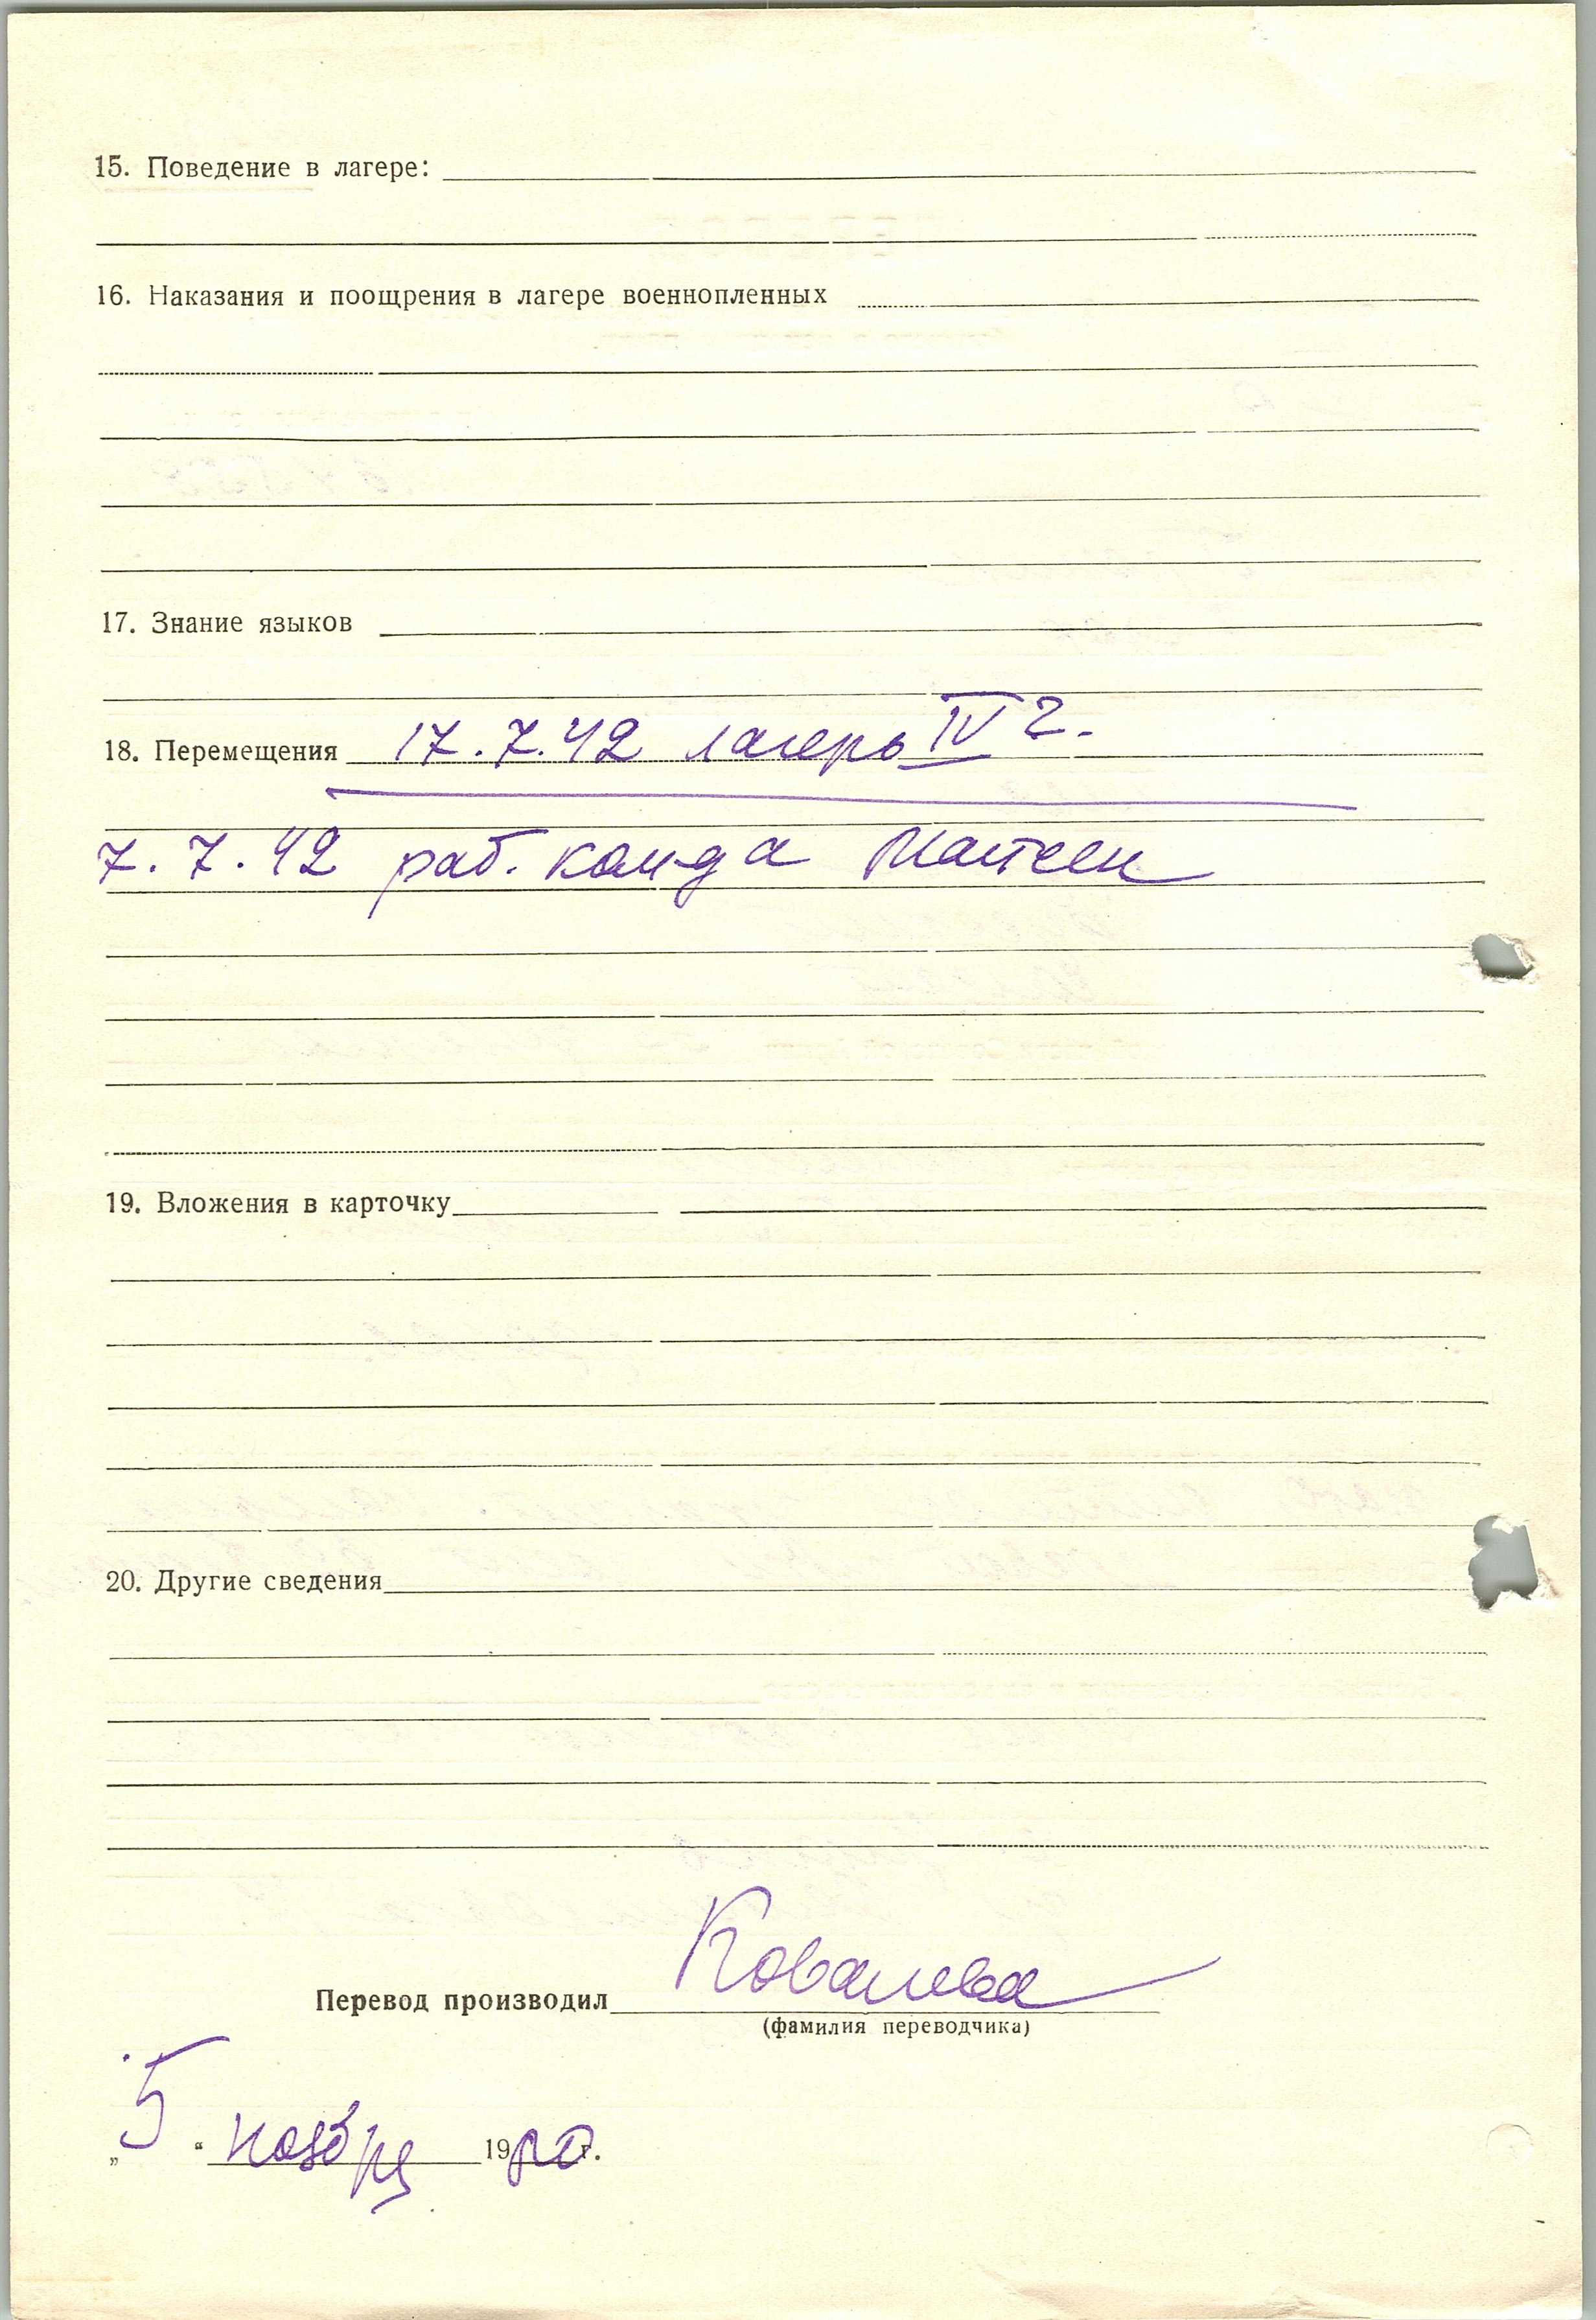 15. Поведение в лагере:
16. Наказания и поощрения в лагере военнопленных
17. Знание языков
18. Перемещения 17.7.42 лагерь IV г.
7.7.42 раб. кой-да
19. Вложения в карточку
20. Другие сведения
Перевод производил Ковалева
(фамилия переводчика)
„5“ ноября 19 г.